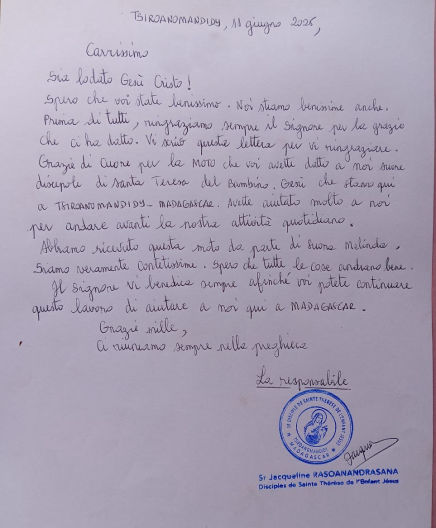 TSIROANOMANDIDY, 11 giugno 2025,
Carissimo
Sia lodato Gesù Cristo!
Spero che voi state benissimo. Noi stiamo benissime anche.
Prima di tutti, ringraziamo sempre il Signore per la grazia
che ci ha datto. Vi scrivo questa lettera per vi ringraziare.
Grazie di Cuore per la MOTO che voi avette datto a noi suore
discepole di Santa Teresa del Bambino. Gesù che stiamo qui
a TSIROANOMANDIDY-MADAGASCAR. Avette aiutato molto a noi
per andare avanti la nostra attività quotidiano.
Abbiamo ricevuto questa moto da parte di suora Melinda.
Siamo veramente Contetissime. Spero che tutte le cose andrano bene.
Il Signore vi benedica sempre afinché voi potete continuare
questo lavoro di aiutare a noi qui a MADAGASCAR.
Grazie mille,
Ci riuniremo sempre nella preghiera
La responsabile
DISCIPLES DE SAINTE THÉRÈSE DE L'ENFANT JÉSUS
TSIROANOMANDIDY
MADAGASCAR
Sr Jacqueline RASOANANDRASANA
Disciples de Sainte Thérèse de l'Enfant Jésus